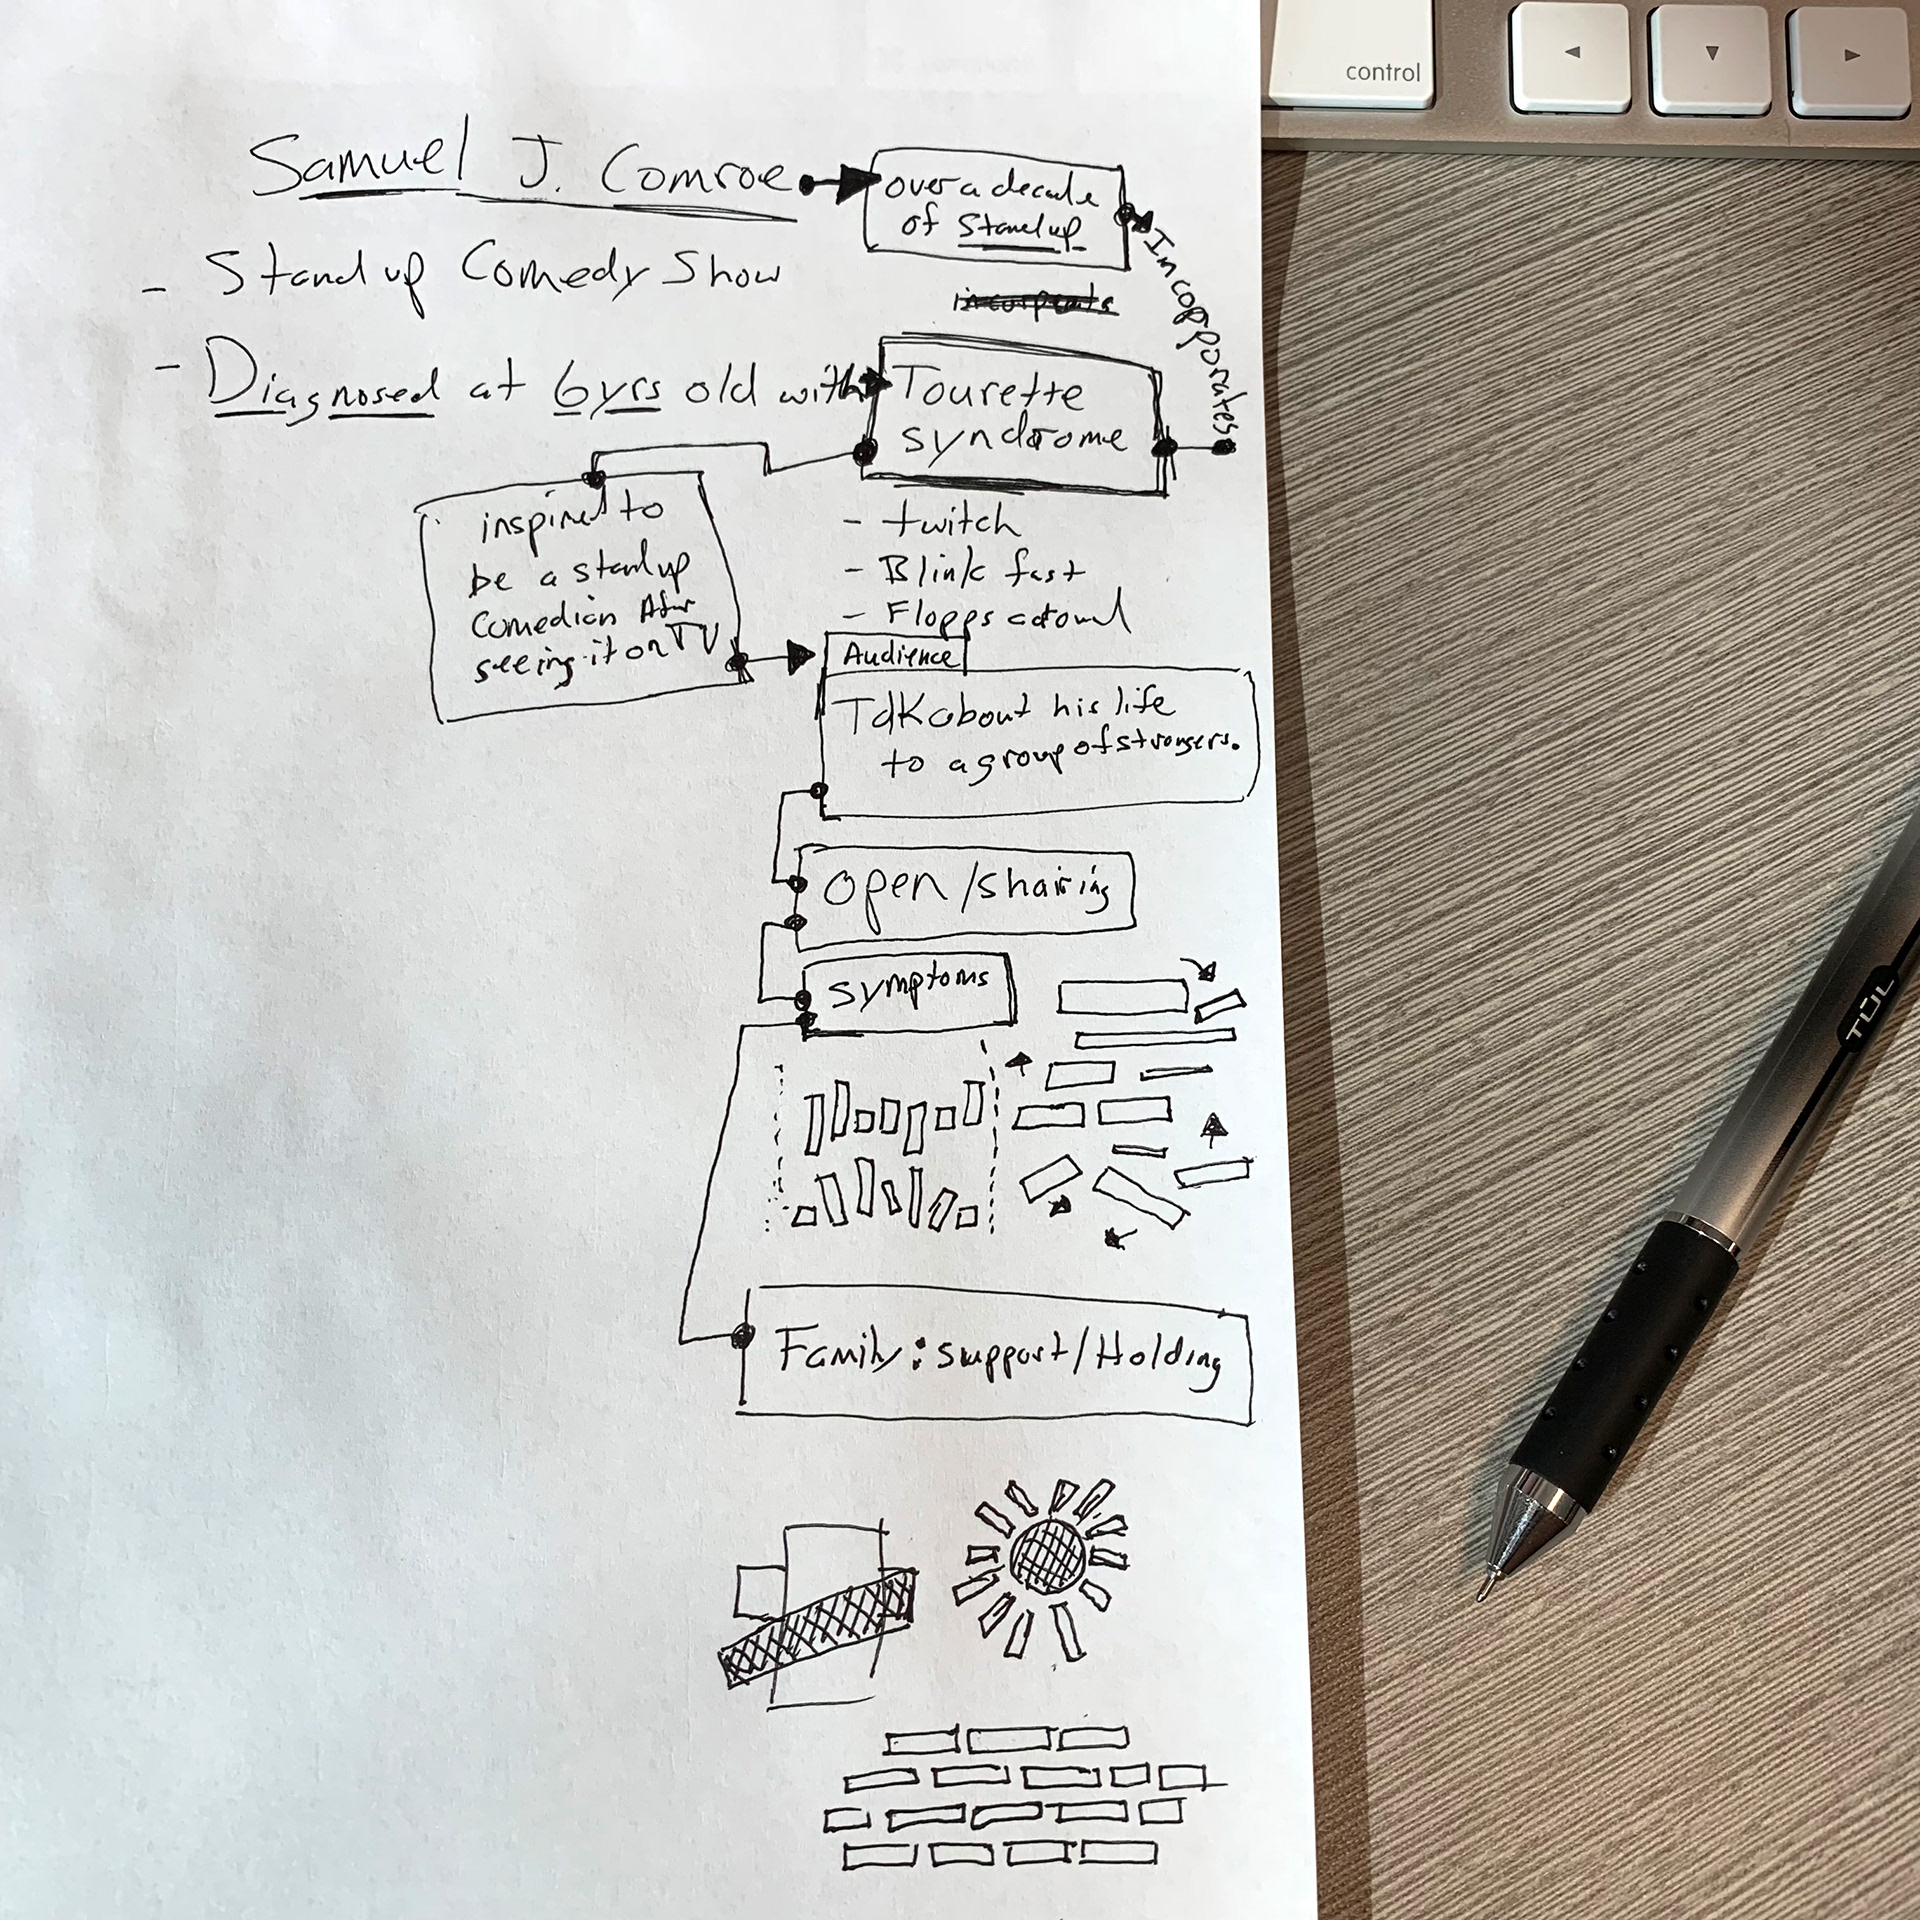 control
Samuel J. Comroe
over a decade
of Standup
Incorporates
- Standup Comedy Show
- Diagnosed at 6yrs old with
Tourette
syndrome
inspired to
be a standup
Comedian After
seeing it on TV
- twitch
- Blink fast
- Flopps
Audience
Talk about his life
to a group of strangers.
open/sharing
symptoms
Family: support/Holding
TUL